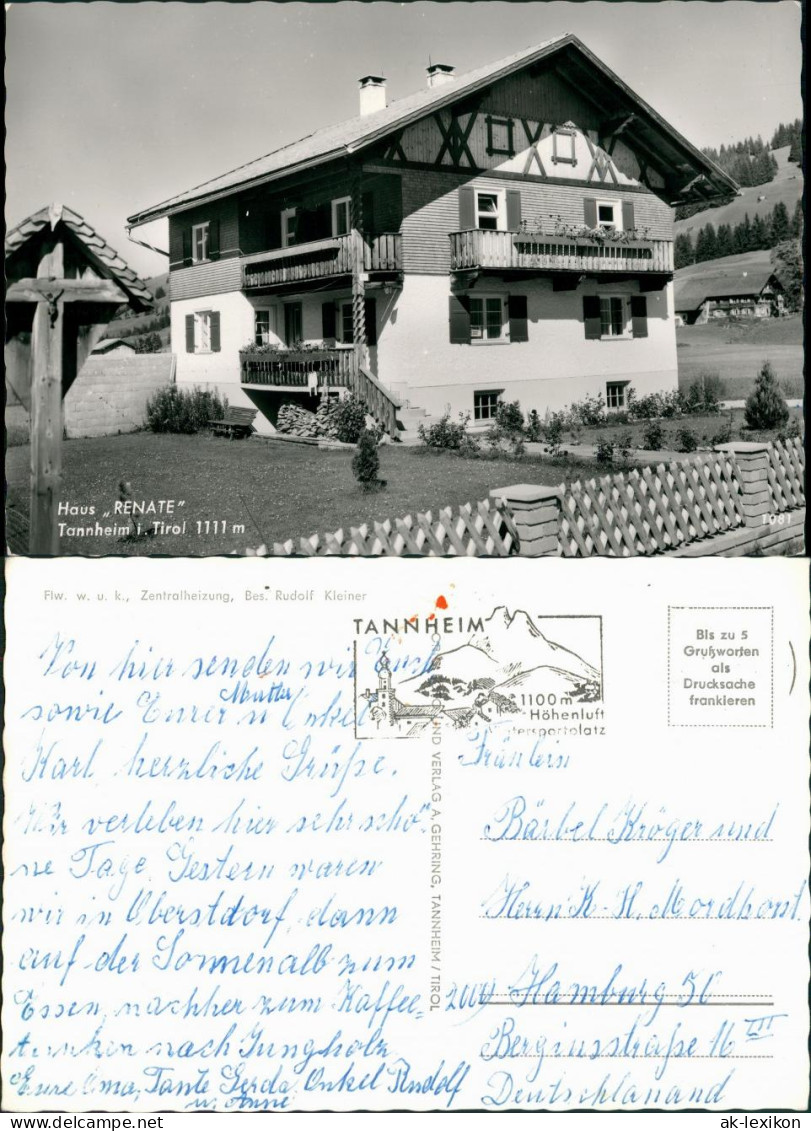 Haus „RENATE"
Tannheim i. Tirol 1111 m
1081
Flw. w. u. k., Zentralheizung, Bes. Rudolf Kleiner
TANNHEIM
1100 m
Höhenluft
tersportplatz
Bis zu 5
Grußworten
als
Drucksache
frankieren
UND VERLAG A. GEHRING, TANNHEIM / TIROL
Von hier senden wir Euch
sowie Eurer Mutter u Onkel
Karl herzliche Grüße.
Wir verleben hier sehr schö-
ne Tage. Gestern waren
wir in Oberstdorf, dann
auf der Sonnenalb zum
Essen, nachher zum Kaffee-
trinken nach Jungholz
Eure Oma, Tante Gerda, Onkel Rudolf
u.
Fräulein
Bärbel Kröger und
Herrn K-H. Mordhorst
2000 Hamburg 50
Bergiusstraße 16 III
Deutschlanand
ak-lexikon